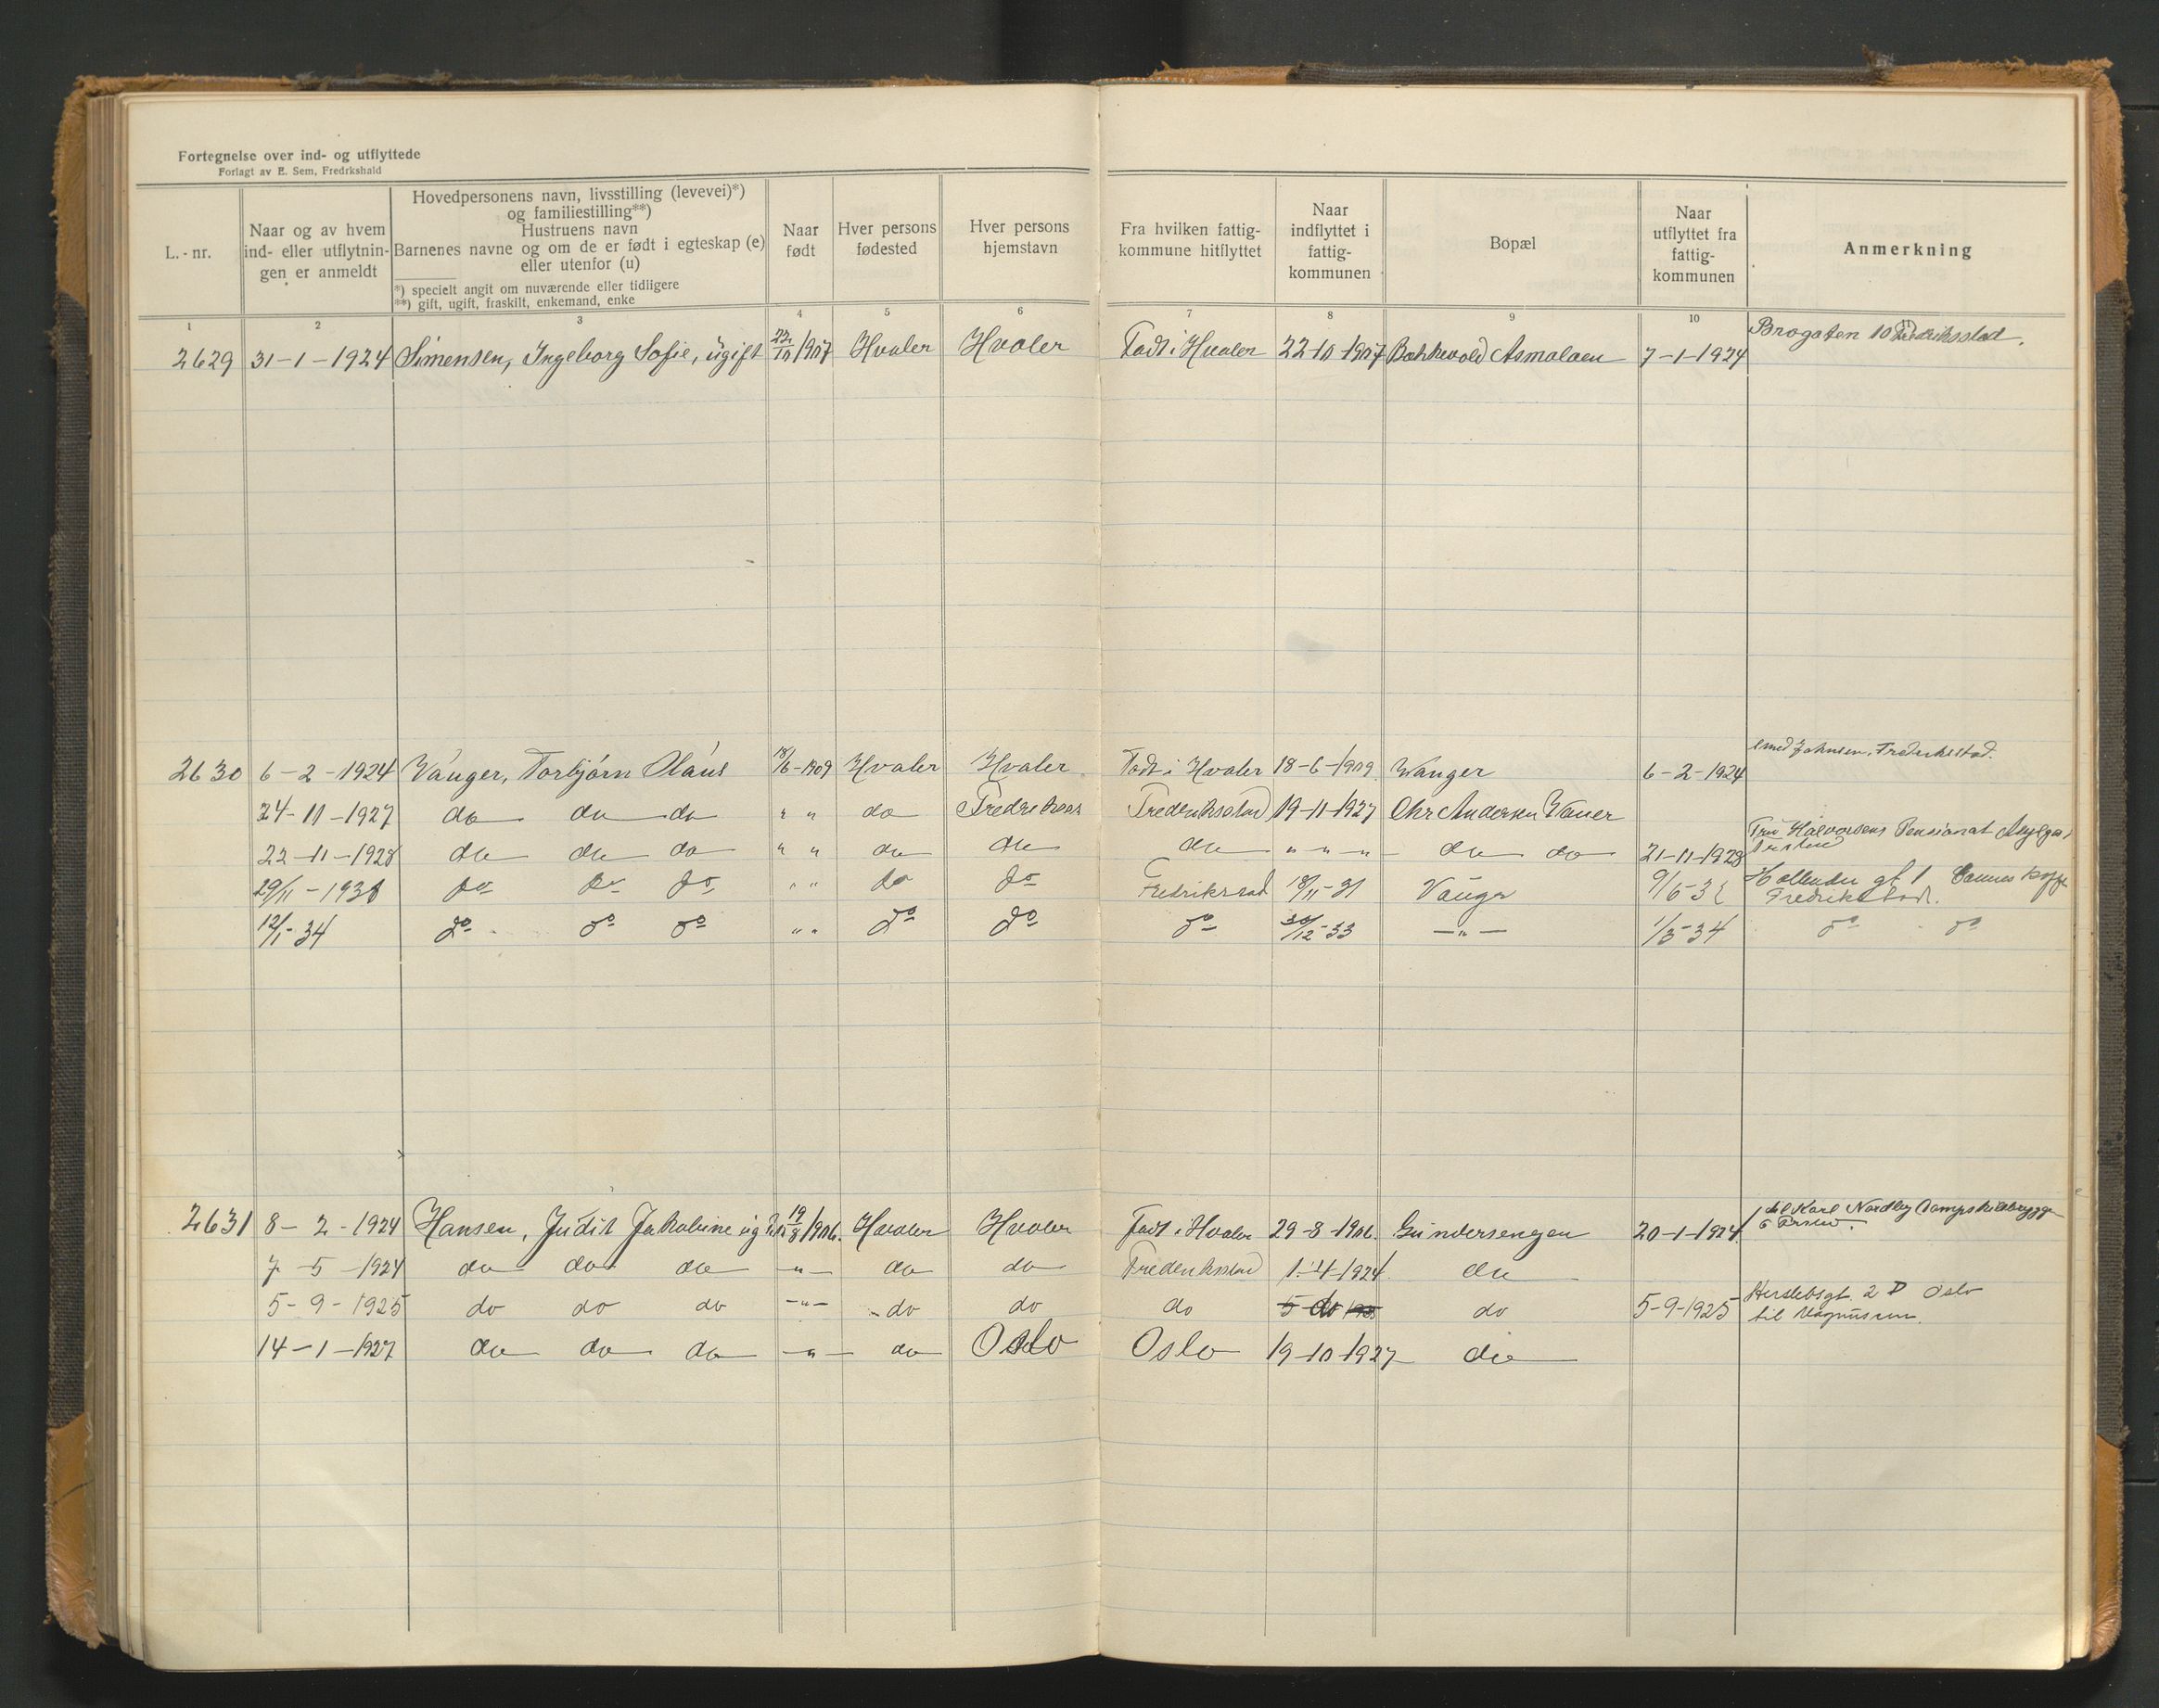 Fortegnelse over ind- og utflyttede
Forlagt av E. Sem, Fredrkshald
L.-nr.
Naar og av hvem
ind- eller utflytnin-
gen er anmeldt
Hovedpersonens navn, livsstilling (levevei)*)
og familiestilling**)
Hustruens navn
Barnenes navne og om de er født i egteskap (e)
eller utenfor (u)
*) specielt angit om nuværende eller tidligere
**) gift, ugift, fraskilt, enkemand, enke
Naar
født
Hver persons
fødested
Hver persons
hjemstavn
Fra hvilken fattig-
kommune hitflyttet
Naar
indflyttet i
fattig-
kommunen
Bopæl
Naar
utflyttet fra
fattig-
kommunen
Anmerkning
1 2 3 4 5 6 7 8 9 10
2629 31-1-1924 Simensen, Ingeborg Sofie, ugift 22/10 1907 Hvaler Hvaler Født i Hvaler 22-10-1907 Bakkevold Asmaløen 7-1-1924 Brogaten 10 Fredriksstad.
2630 6-2-1924 Vauger, Torbjørn Olaus 18/6-1909 Hvaler Hvaler Født i Hvaler 18-6-1909 Wauger 6-2-1924 Johnsen, Frederikstad.
24-11-1927 do do do " " do Fredriksstad 19-11-1927 Chr Andersen Vauer
22-11-1928 do do do " " do do do " " " do do 21-11-1928 Fru Halvorsens Pensionat
29/11-1931 do do do " " do do Fredriksstad 18/11-31 Vauger 9/6-32 Hollender gt 1
Fredrikstad.
12/1-34 do do do " " do do do 30/12-33 -"- 1/3-34 do do
2631 8-2-1924 Hansen, Judit Jakobine 29/8 1906. Hvaler Hvaler Født i Hvaler 29-8-1906. Gundersengen 20-1-1924 til Karl Nordby Dampskibsbrygge
7-5-1924 do do do -"- do do Frederiksstad 1-4-1924. do
5-9-1925 do do do -"- do do do 5 do do 5-9-1925 Herslebsgt. 2 D Oslo
til Magnussen.
14-1-1927 do do do -"- do Oslo Oslo 19-10-1927 do